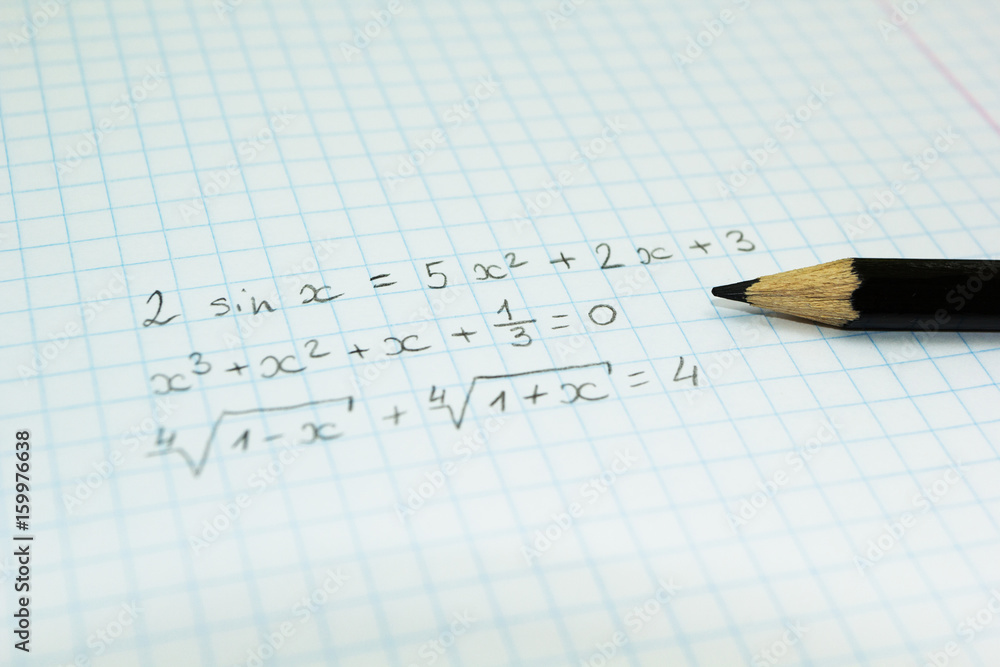 2 sin x = 5x² + 2x + 3
x³ + x² + x + 1/3 = 0
∜(1 - x) + ∜(1 + x) = 4
Adobe Stock | #159976638